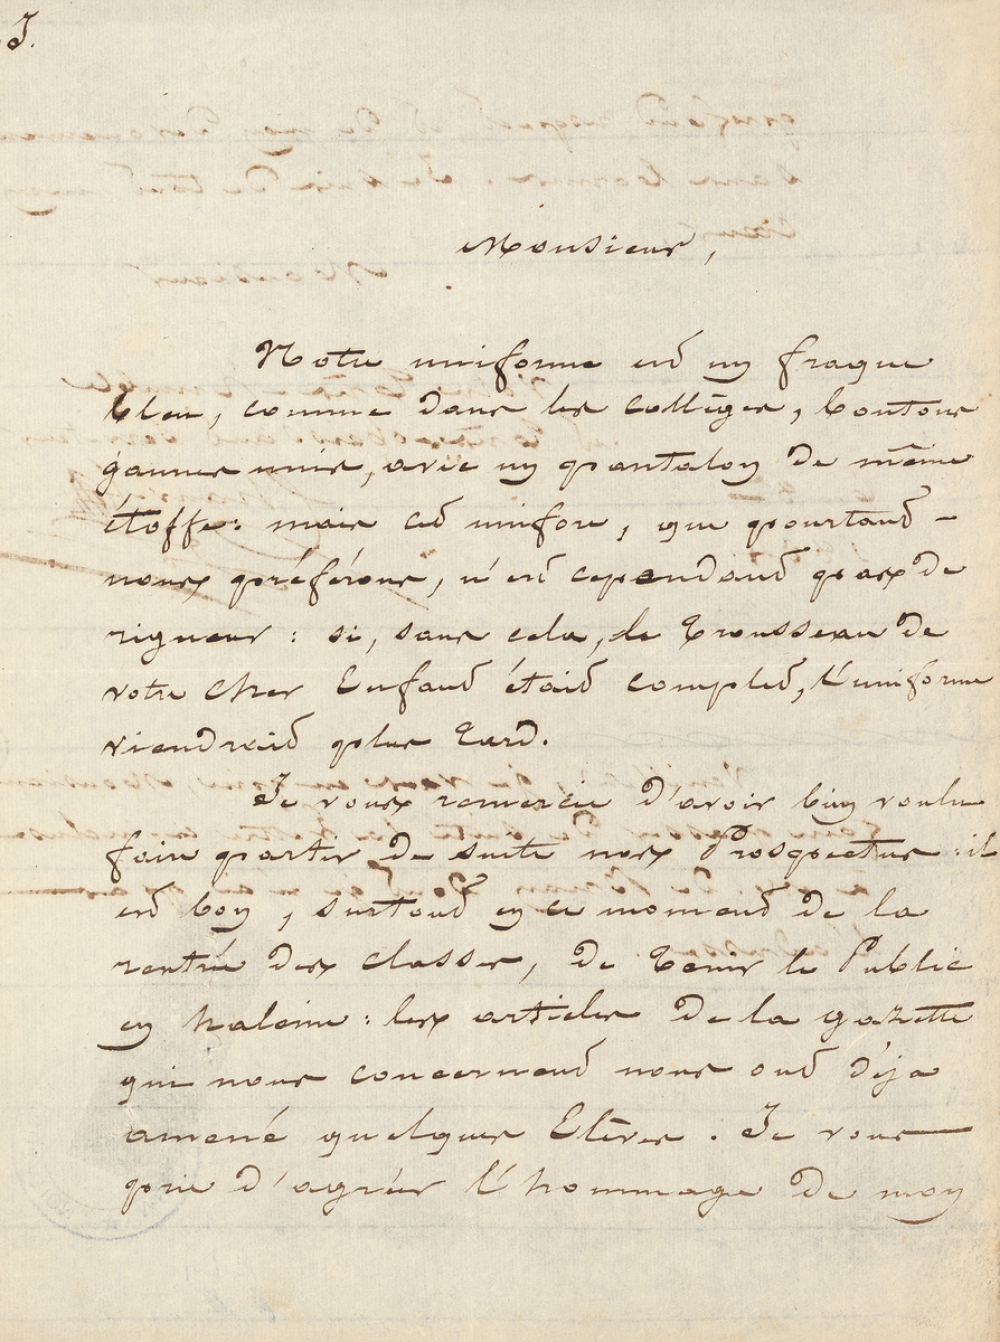 J.
Monsieur,
Notre uniforme est un fraque
bleu, comme dans les collèges, boutons
jaunes unis, avec un pantalon de même
étoffe: mais cet unifore, que pourtant -
nous préférons, n'est cependant pas de
rigueur : si, sans cela, le trousseau de
votre cher Enfant était complet, l'uniforme
viendrait plus tard.
Je vous remercie d'avoir bien voulu
faire partir de suite nos Prospectus : il
est bon, surtout en ce moment de la
rentrée des classes, de tenir le Public
en haleine : les articles de la gazette
qui nous concernent nous ont déja
amené quelques Elèves. Je vous
prie d'agréer l'hommage de mon